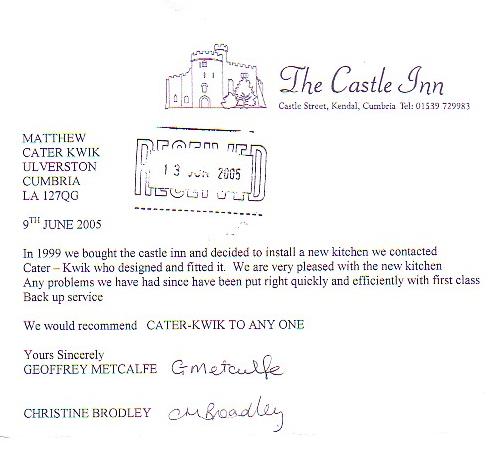 The Castle Inn
Castle Street, Kendal, Cumbria Tel: 01539 729983
MATTHEW
CATER KWIK
ULVERSTON
CUMBRIA
LA 127QG
RECEIVED
13 JUN 2005
RECEIVED
9TH JUNE 2005
In 1999 we bought the castle inn and decided to install a new kitchen we contacted
Cater – Kwik who designed and fitted it. We are very pleased with the new kitchen
Any problems we have had since have been put right quickly and efficiently with first class
Back up service
We would recommend CATER-KWIK TO ANY ONE
Yours Sincerely
GEOFFREY METCALFE GMetcalfe
CHRISTINE BRODLEY CMBroadley